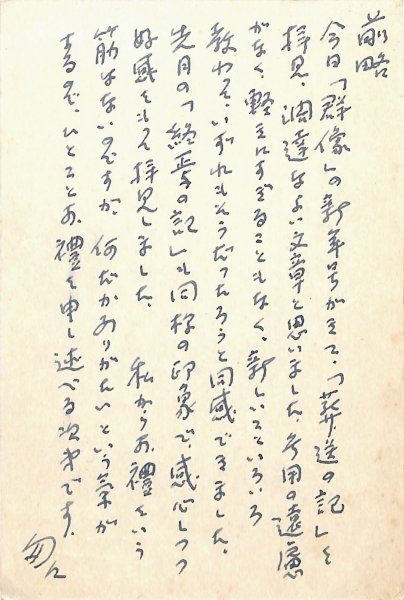 前略
今日「群像」の新年号がきて、「葬送の記」を
拝見、洒達なよい文章と思いました。無用の遠慮
がなく、軽きにすぎることもなく、新しいこといろいろ
教わって、いずれもそうだったろうと同感できました。
先月の「終焉の記」も同様の印象で、感心しつつ
好感をもって拝見しました。 私からお禮をいう
筋はないのですが、何だかありがたいという氣が
するので、ひとことお禮を申し述べる次第です。
匆々